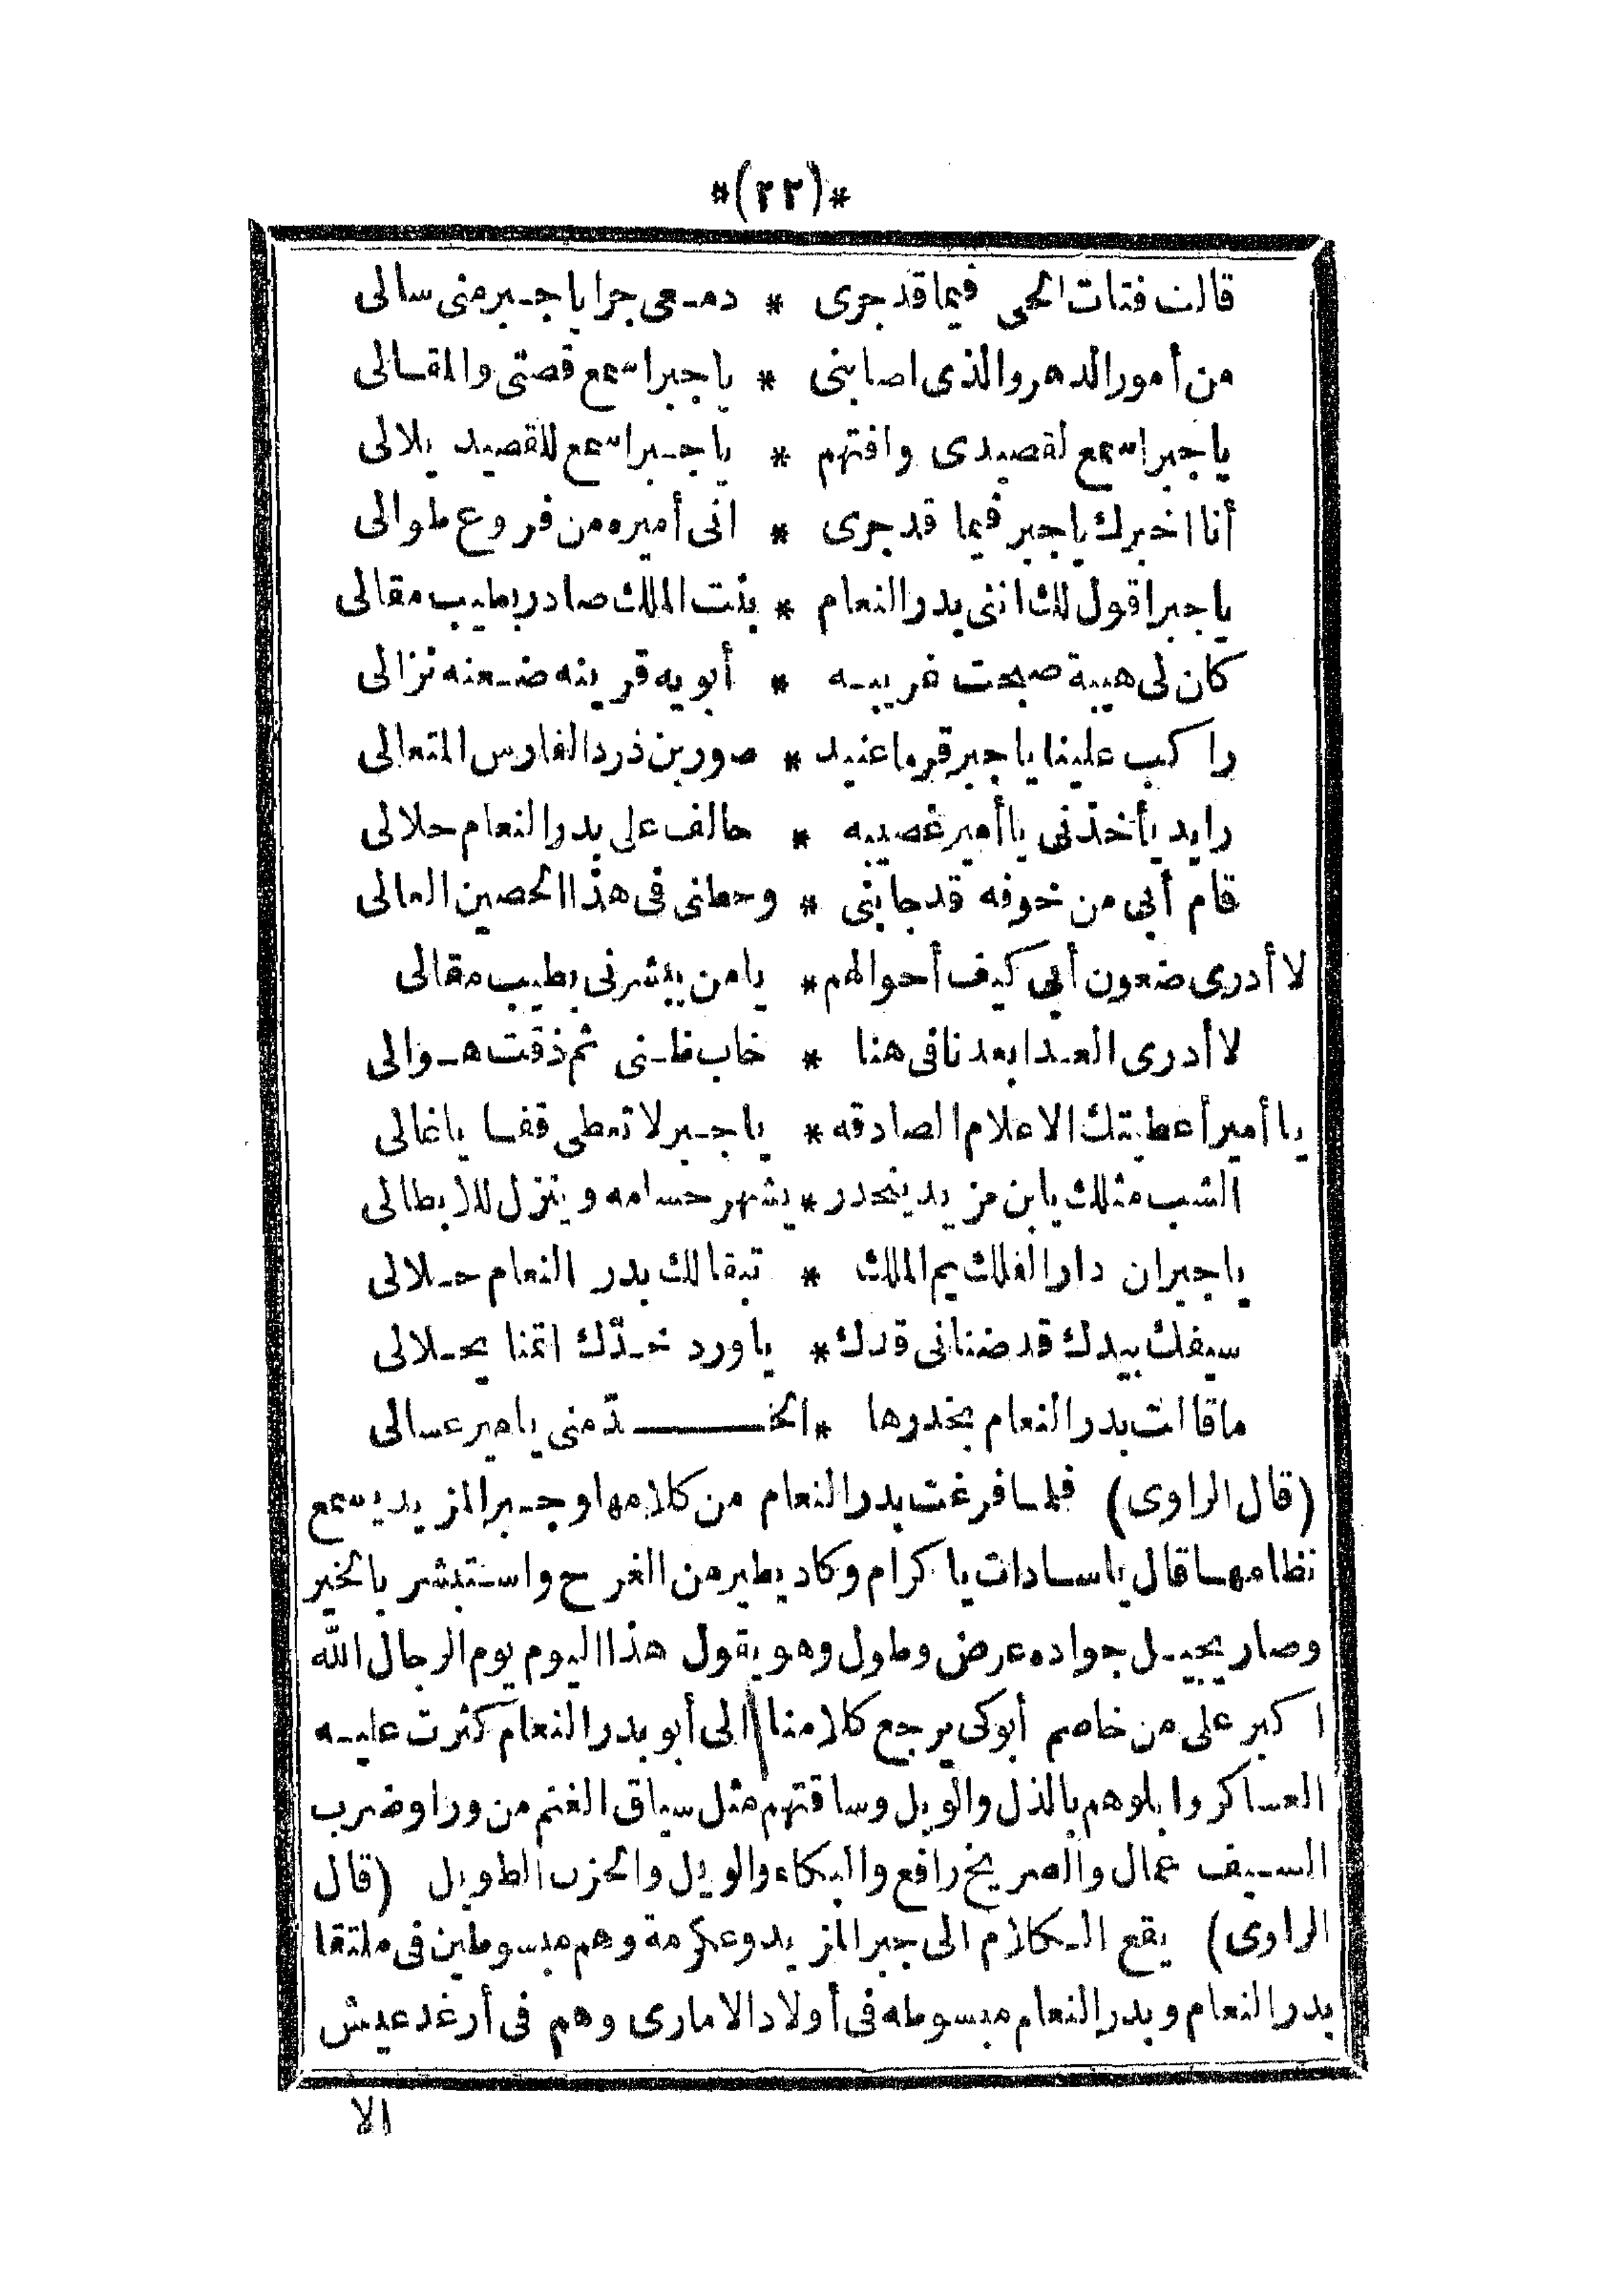 *(٢٢)*
قالت فتات الحى فيما قد جرى * دمعى جرا يا جبر منى سالى
من أمور الدهر والذى اصابنى * يا جبر اسمع قصتى والمقالى
يا جبر اسمع لقصيدى وافتهم * يا جبر اسمع للقصيد يلالى
أنا اخبرك يا جبر فيما قد جرى * انى أميره من فروع طوالى
يا جبر اقول لك اننى بدر النعام * بنت الملك صادر بطيب مقالى
كان لى هيبة صبحت غريبه * أبويه قرينه ضعنه نزالى
راكب علينا يا جبر قرما عنيد * صور بن ذرد الفارس المتعالى
رايد يأخذنى يا أمير غصيبه * حالف على بدر النعام حلالى
قام أبى من خوفه قد جابنى * وحطنى فى هذا الحصين العالى
لا أدرى ضعون أبى كيف أحوالهم * يا من يبشرنى بطيب مقالى
لا أدرى العدا بعدنا فى هنا * خاب ظنى ثم ذقت هوالى
يا أمير أعطيتك الاعلام الصادقه * يا جبر لا تعطى قفا يا غالى
الشب مثلك يا بن مزيد ينحدر * يشهر حسامه وينزل للابطالى
يا جبر ان دار الفلك يم الملك * تبقا لك بدر النعام حلالى
سيفك بيدك قد ضنانى قدك * يا ورد خدّك اتمنا يحلالى
ما قالت بدر النعام بخدرها * الخدّ منى يا مير عسالى
(قال الراوى) فلما فرغت بدر النعام من كلامها وجبر المزيد يسمع
نظامها قال يا سادات يا كرام وكاد يطير من الفرح واستبشر بالخير
وصار يجيل جواده عرض وطول وهو يقول هذا اليوم يوم الرجال الله
اكبر على من خاصم أبوكى يرجع كلامنا الى أبو بدر النعام كثرت عليه
العساكر وابلوهم بالذل والويل وساقتهم مثل سياق الغنم من ورا وضرب
السيف عمال والصريخ رافع والبكاء والويل والحزن الطويل (قال
الراوى) يقع الكلام الى جبر المزيد وعكرمة وهم مبسوطين فى ملتقا
بدر النعام وبدر النعام مبسوطه فى أولاد الامارى وهم فى أرغد عيش
الا